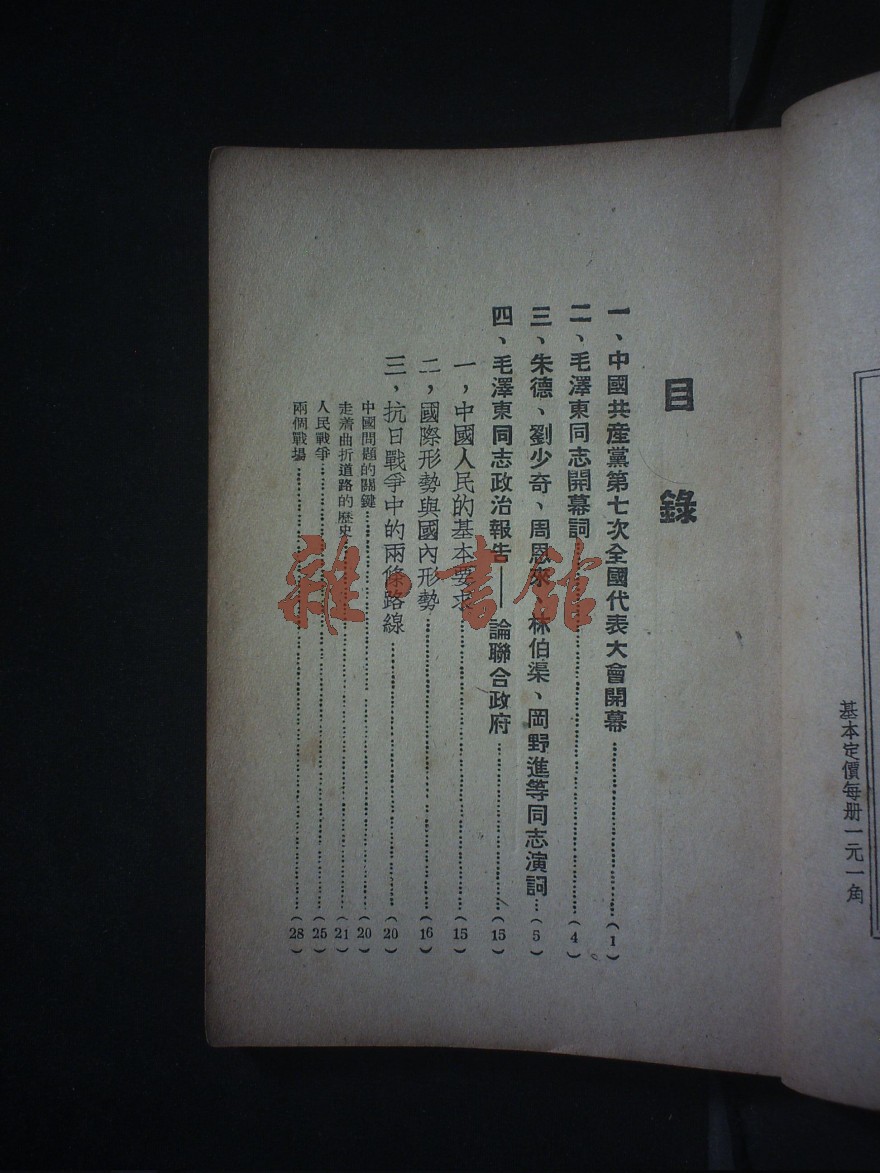 基本定價每册一元一角
目錄
一、中國共産黨第七次全國代表大會開幕……(1)
二、毛澤東同志開幕詞……(4)
三、朱德、劉少奇、周恩來、林伯渠、岡野進等同志演詞…(5)
四、毛澤東同志政治報告——論聯合政府……(15)
一，中國人民的基本要求……(15)
二，國際形勢與國內形勢……(16)
三，抗日戰爭中的兩條路線……(20)
中國問題的關鍵……(20)
走着曲折道路的歷史……(21)
人民戰爭……(25)
兩個戰場……(28)
雜·書館